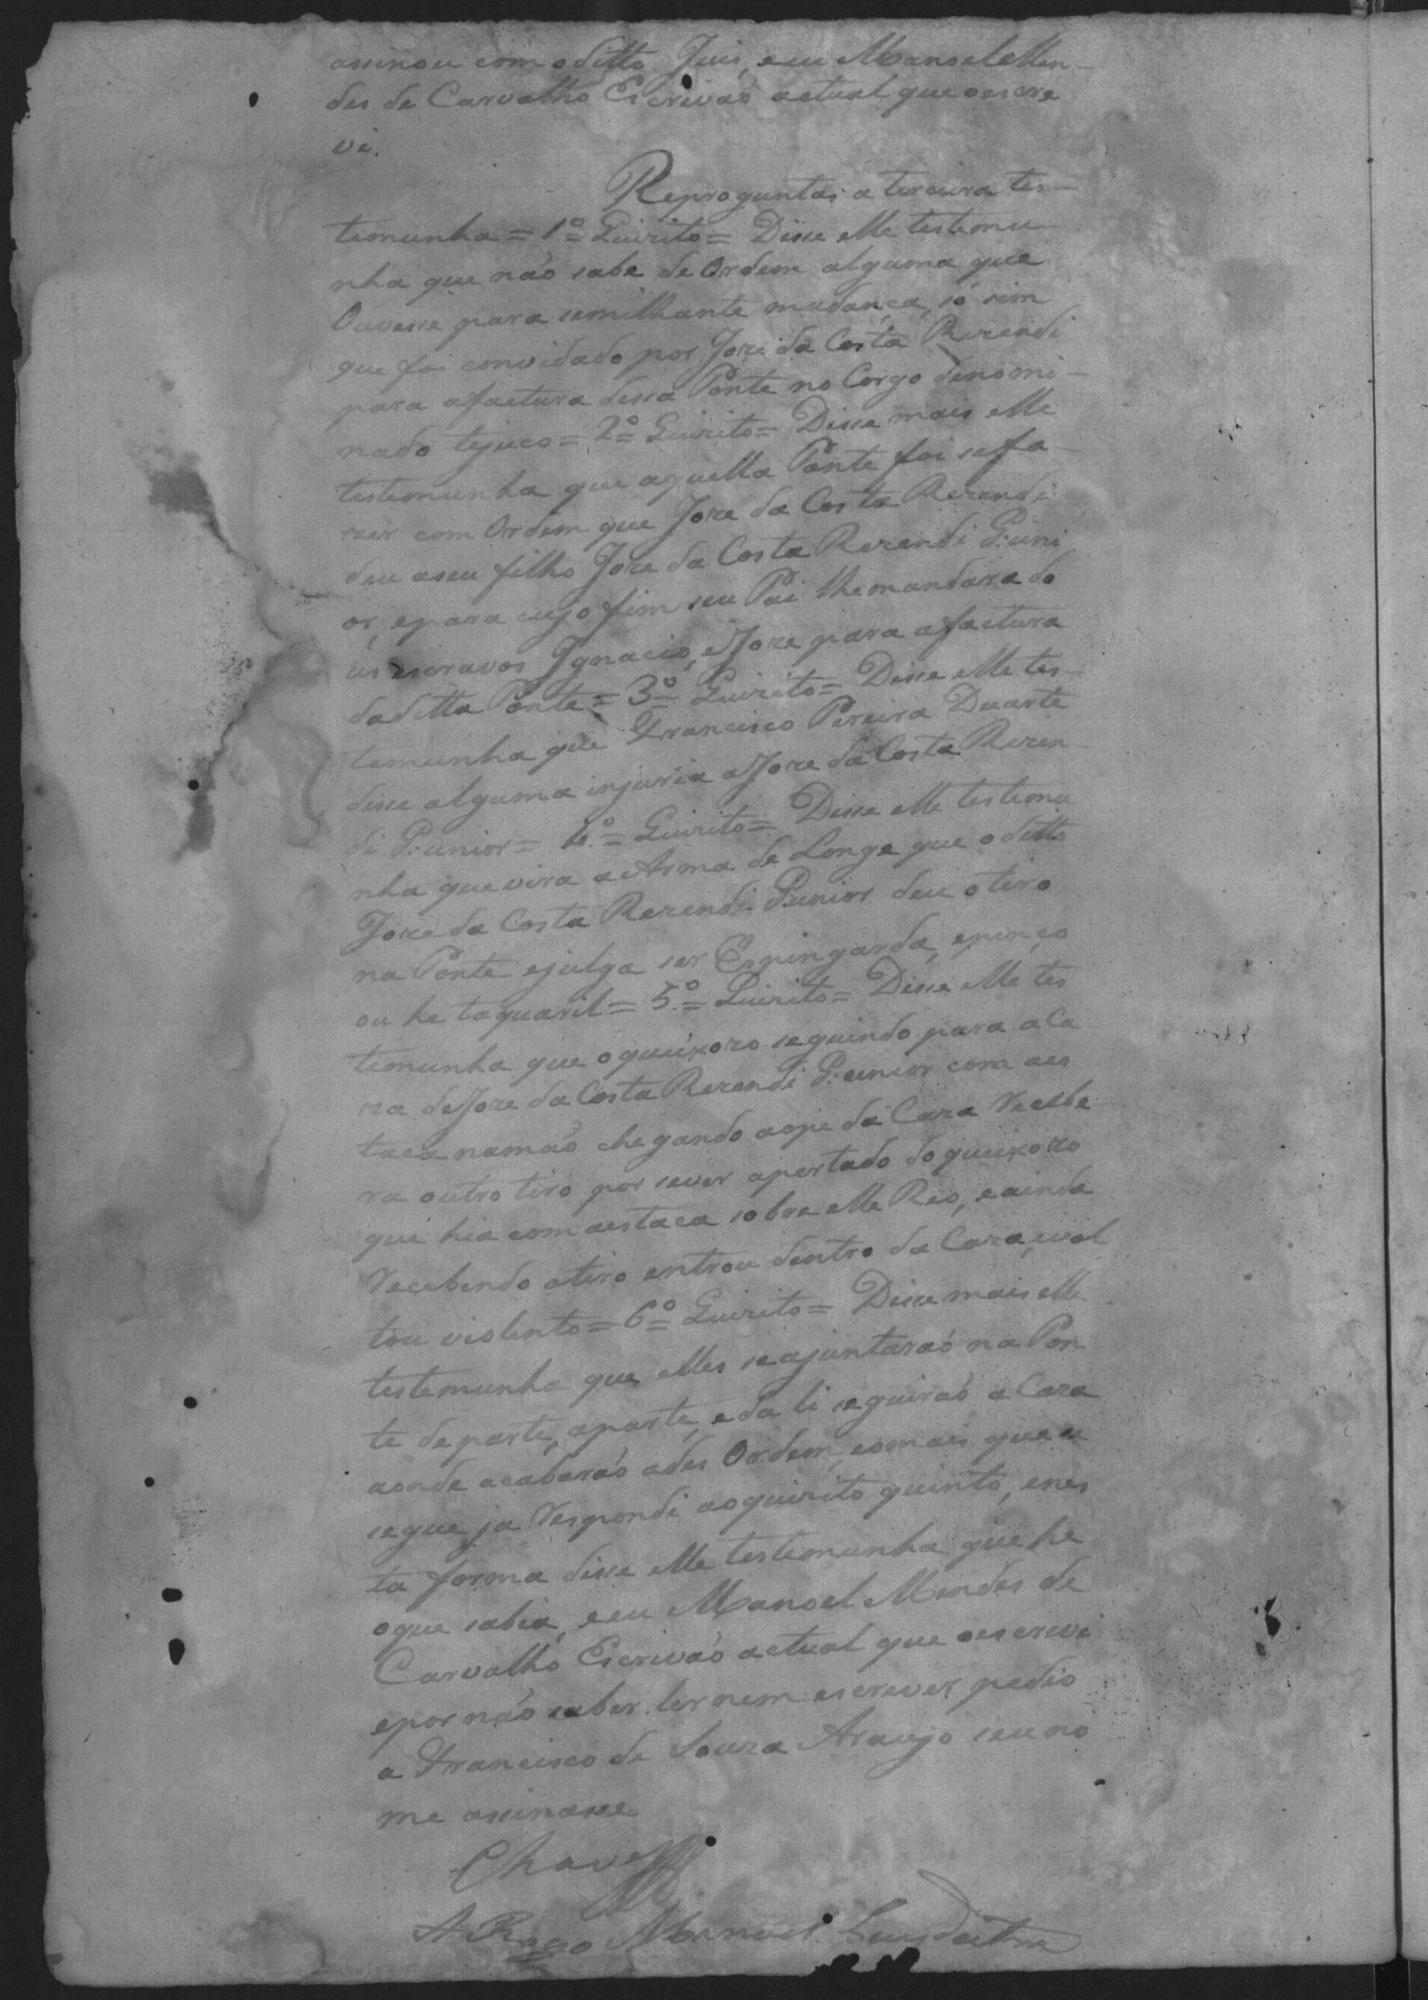 assinou com o ditto Juis, e eu Manoel Men-
des de Carvalho Escrivaõ actual que o escre
vi.
Reproguntas a terceira tes-
temunha = 1º = Quizito = Disse elle testemu
nha que naõ sabe de Ordem alguma que
Ouvesse para semilhante mudança, só sim
que foi convidado por Joze da Costa Rezendi
para afactura dessa Ponte no Corgo denomi-
nado tejuco = 2º = Quizito = Disse mais elle
testemunha que aquella Ponte foi sefa-
zer com Ordem que Joze da Costa Rezendi
deu aseu filho Joze da Costa Rezendi Juni
or, epara cujo fim seu Pai lhemandara do
us escravos Ignacio, eJoze para afactura
daditta Ponte = 3º = Quizito = Disse elle tes-
temunha que Francisco Pereira Duarte
disse alguma injuria aJoze da Costa Rezen
di Junior = 4º = Quizito = Disse elle testemu
nha que vira a Arma de Longe que o ditto
Joze da Costa Rezendi Junior deu o tiro
na Ponte ejulga ser Espingarda,
ou he taquaril = 5º = Quizito = Disse elle tes
temunha que oqueixozo seguindo para aCa
za deJoze da Costa Rezendi Junior com aes
taca namaõ chegando aope da Caza Recebe
ra outro tiro por sever apertado do queixozo
que hia com aestaca sobre elle Reo, eainda
Recebendo otiro entrou dentro da Caza, evol
tou violento = 6º = Quizito = Disse mais elle
testemunha que elles seajuntaraõ na Pon
te de parte, aparte, eda li seguiraõ a Caza
aonde acabaraõ ades Ordem, eomais que se
segue ja Respondi aoquizito quinto, enes
ta forma disse elle testemunha que he
oque sabia, eeu Manoel Mendes de
Carvalho Escrivaõ actual que oescrevi
epor naõ saber ler nem escrever pedio
a Francisco de Souza Araujo seu no
me assinasse
Chaves
A Rogo Manuel